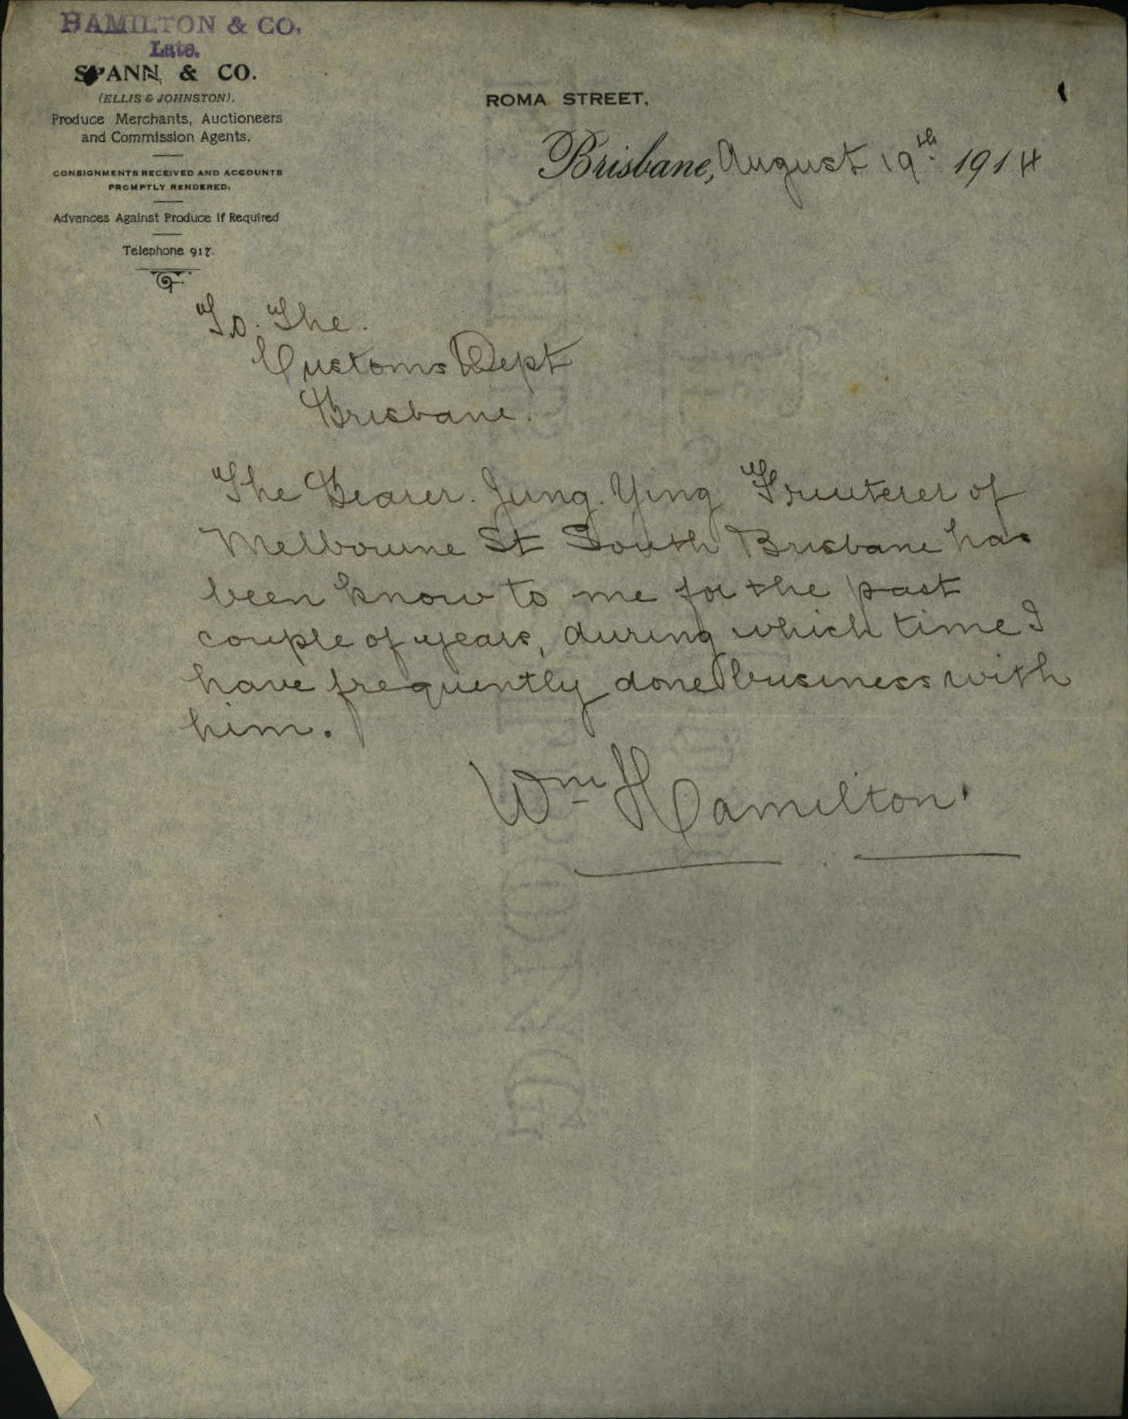 HAMILTON & CO.
Late.
SPANN & CO.
(ELLIS & JOHNSTON).
Produce Merchants, Auctioneers
and Commission Agents.
CONSIGNMENTS RECEIVED AND ACCOUNTS
PROMPTLY RENDERED.
Advances Against Produce if Required
Telephone 917.
ROMA STREET,
Brisbane, August 19th. 1914
To. The.
Customs Dept
Brisbane.
The Bearer. Jung. Ying Fruuterer of
Melbourne St South Brisbane has
been know to me for the past
couple of years, during which time I
have frequently done business with
him.
Wm Hamilton